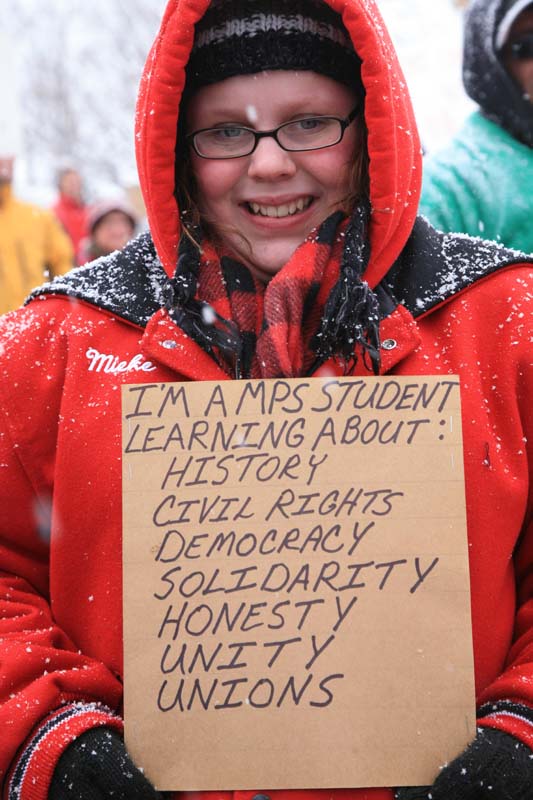 Mieke
I'M A MPS STUDENT
LEARNING ABOUT:
HISTORY
CIVIL RIGHTS
DEMOCRACY
SOLIDARITY
HONESTY
UNITY
UNIONS